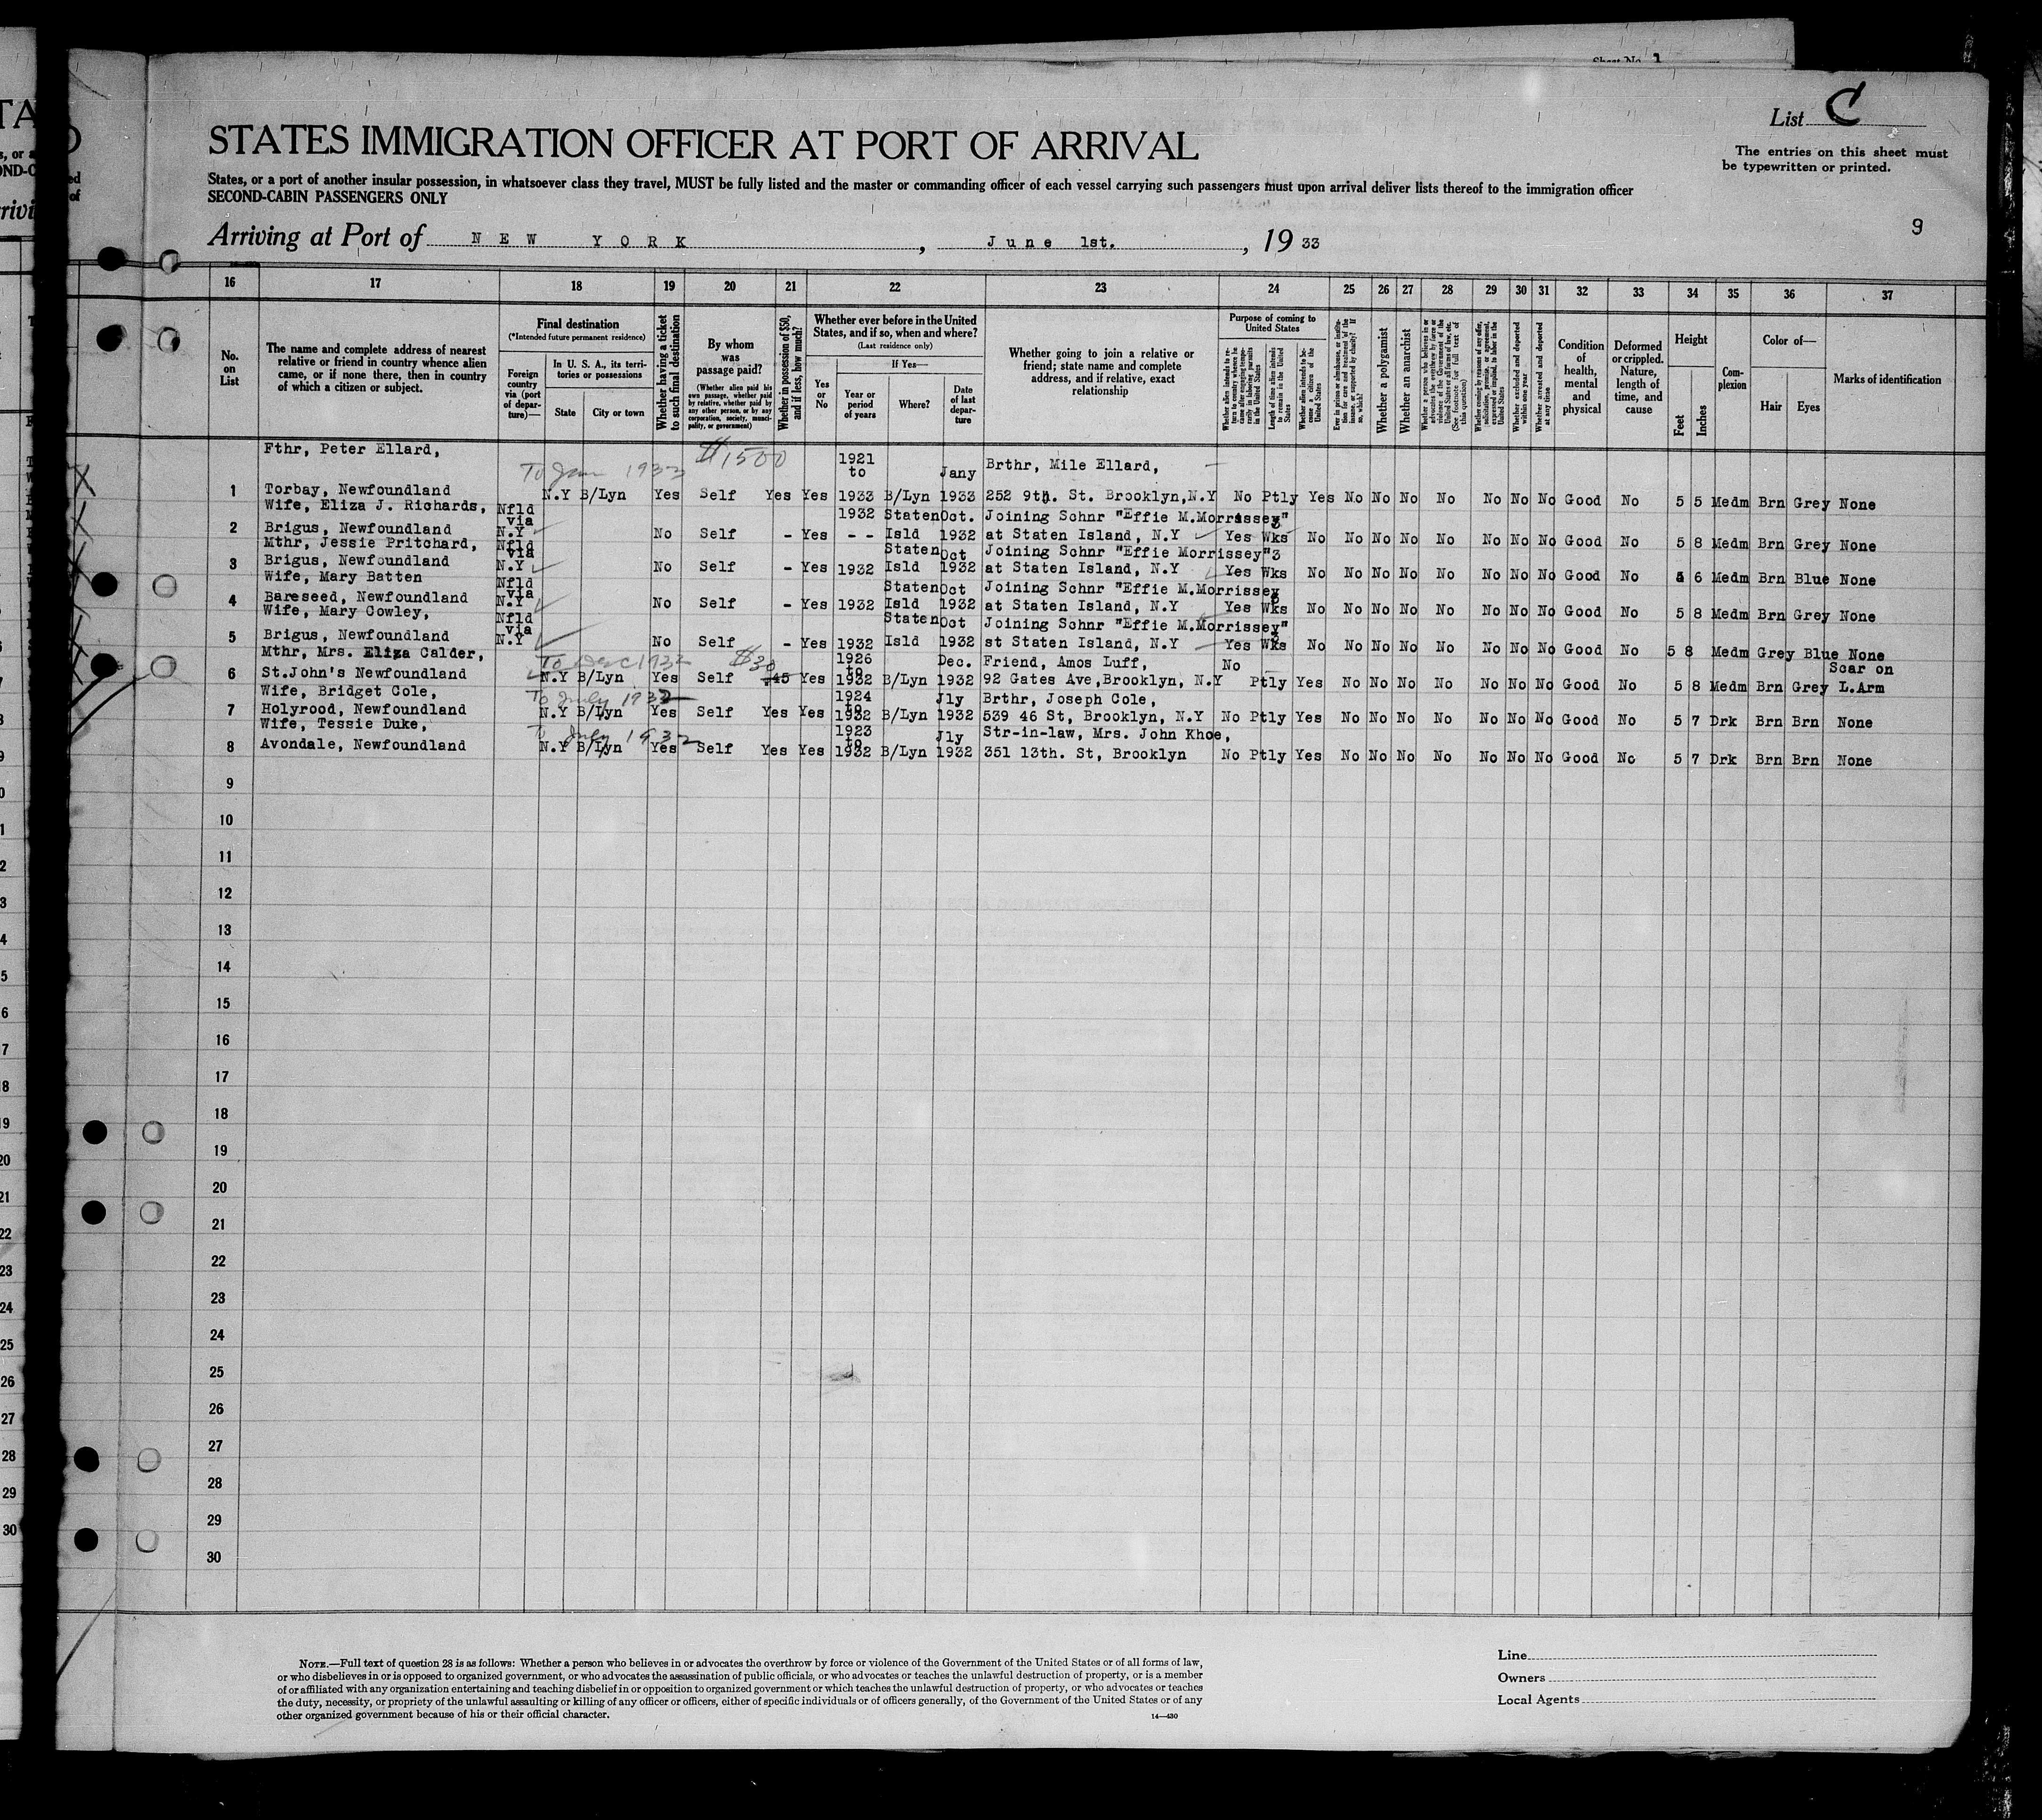 Sheet No. 1
List C
STATES IMMIGRATION OFFICER AT PORT OF ARRIVAL
The entries on this sheet must
be typewritten or printed.
States, or a port of another insular possession, in whatsoever class they travel, MUST be fully listed and the master or commanding officer of each vessel carrying such passengers must upon arrival deliver lists thereof to the immigration officer
SECOND-CABIN PASSENGERS ONLY
9
Arriving at Port of NEW YORK, June 1st., 1933
16 17 18 19 20 21 22 23 24 25 26 27 28 29 30 31 32 33 34 35 36 37
No. on List
The name and complete address of nearest relative or friend in country whence alien came, or if none there, then in country of which a citizen or subject.
Final destination
(*Intended future permanent residence)
Foreign country via (port of departure)—
In U. S. A., its territories or possessions
State
City or town
Whether having a ticket to such final destination
By whom was passage paid?
(Whether alien paid his own passage, whether paid by relative, whether paid by any other person, or by any corporation, society, municipality, or government)
Whether in possession of $50, and if less, how much?
Whether ever before in the United States, and if so, when and where?
(Last residence only)
Yes or No
If Yes—
Year or period of years
Where?
Date of last departure
Whether going to join a relative or friend; state name and complete address, and if relative, exact relationship
Purpose of coming to United States
Whether alien intends to return to country whence he came after engaging temporarily in laboring pursuits in the United States
Length of time alien intends to remain in the United States
Whether alien intends to become a citizen of the United States
Ever in prison or almshouse, or institution for care and treatment of the insane, or supported by charity? If so, which?
Whether a polygamist
Whether an anarchist
Whether a person who believes in or advocates the overthrow by force or violence of the Government of the United States or all forms of law, etc. (See footnote for full text of this question)
Whether coming by reasons of any offer, solicitation, promise, or agreement, expressed or implied, to labor in the United States
Whether excluded and deported within one year
Whether arrested and deported at any time
Condition of health, mental and physical
Deformed or crippled. Nature, length of time, and cause
Height
Feet
Inches
Complexion
Color of—
Hair
Eyes
Marks of identification
Fthr, Peter Ellard, To Jan 1933 $1500 1921 to Jany Brthr, Mile Ellard,
1 Torbay, Newfoundland N.Y B/Lyn Yes Self Yes Yes 1933 B/Lyn 1933 252 9th. St. Brooklyn,N.Y No Ptly Yes No No No No No No No Good No 5 5 Medm Brn Grey None
Wife, Eliza J. Richards, Nfld via 1932 Staten Oct. Joining Schnr "Effie M.Morrissey" 3
2 Brigus, Newfoundland N.Y No Self - Yes -- Isld 1932 at Staten Island, N.Y Yes Wks No No No No No No No No Good No 5 8 Medm Brn Grey None
Mthr, Jessie Pritchard, Nfld via Staten Oct Joining Schnr "Effie Morrissey" 3
3 Brigus, Newfoundland N.Y No Self - Yes 1932 Isld 1932 at Staten Island, N.Y Yes Wks No No No No No No No No Good No 5 6 Medm Brn Blue None
Wife, Mary Batten Nfld via Staten Oct Joining Schnr "Effie M.Morrissey
4 Bareseed, Newfoundland N.Y No Self - Yes 1932 Isld 1932 at Staten Island, N.Y Yes Wks No No No No No No No No Good No 5 8 Medm Brn Grey None
Wife, Mary Cowley, Nfld via Staten Oct Joining Schnr "Effie M.Morrissey" 3
5 Brigus, Newfoundland N.Y No Self - Yes 1932 Isld 1932 st Staten Island, N.Y Yes Wks No No No No No No No No Good No 5 8 Medm Grey Blue None
Mthr, Mrs. Eliza Calder, To Dec 1932 $30 1926 to Dec. Friend, Amos Luff, No Scar on
6 St.John's Newfoundland N.Y B/Lyn Yes Self 45 Yes 1932 B/Lyn 1932 92 Gates Ave,Brooklyn, N.Y Ptly Yes No No No No No No No Good No 5 8 Medm Brn Grey L.Arm
Wife, Bridget Cole, To July 1932 1924 to Jly Brthr, Joseph Cole,
7 Holyrood, Newfoundland N.Y B/Lyn Yes Self Yes Yes 1932 B/Lyn 1932 539 46 St, Brooklyn, N.Y No Ptly Yes No No No No No No No Good No 5 7 Drk Brn Brn None
Wife, Tessie Duke, To July 1932 1923 to Jly Str-in-law, Mrs. John Khoe,
8 Avondale, Newfoundland N.Y B/Lyn Yes Self Yes Yes 1932 B/Lyn 1932 351 13th. St, Brooklyn No Ptly Yes No No No No No No No Good No 5 7 Drk Brn Brn None
9
10
11
12
13
14
15
16
17
18
19
20
21
22
23
24
25
26
27
28
29
30
NOTE.—Full text of question 28 is as follows: Whether a person who believes in or advocates the overthrow by force or violence of the Government of the United States or of all forms of law,
or who disbelieves in or is opposed to organized government, or who advocates the assassination of public officials, or who advocates or teaches the unlawful destruction of property, or is a member
of or affiliated with any organization entertaining and teaching disbelief in or opposition to organized government or which teaches the unlawful destruction of property, or who advocates or teaches
the duty, necessity, or propriety of the unlawful assaulting or killing of any officer or officers, either of specific individuals or of officers generally, of the Government of the United States or of any
other organized government because of his or their official character.
14—430
Line
Owners
Local Agents